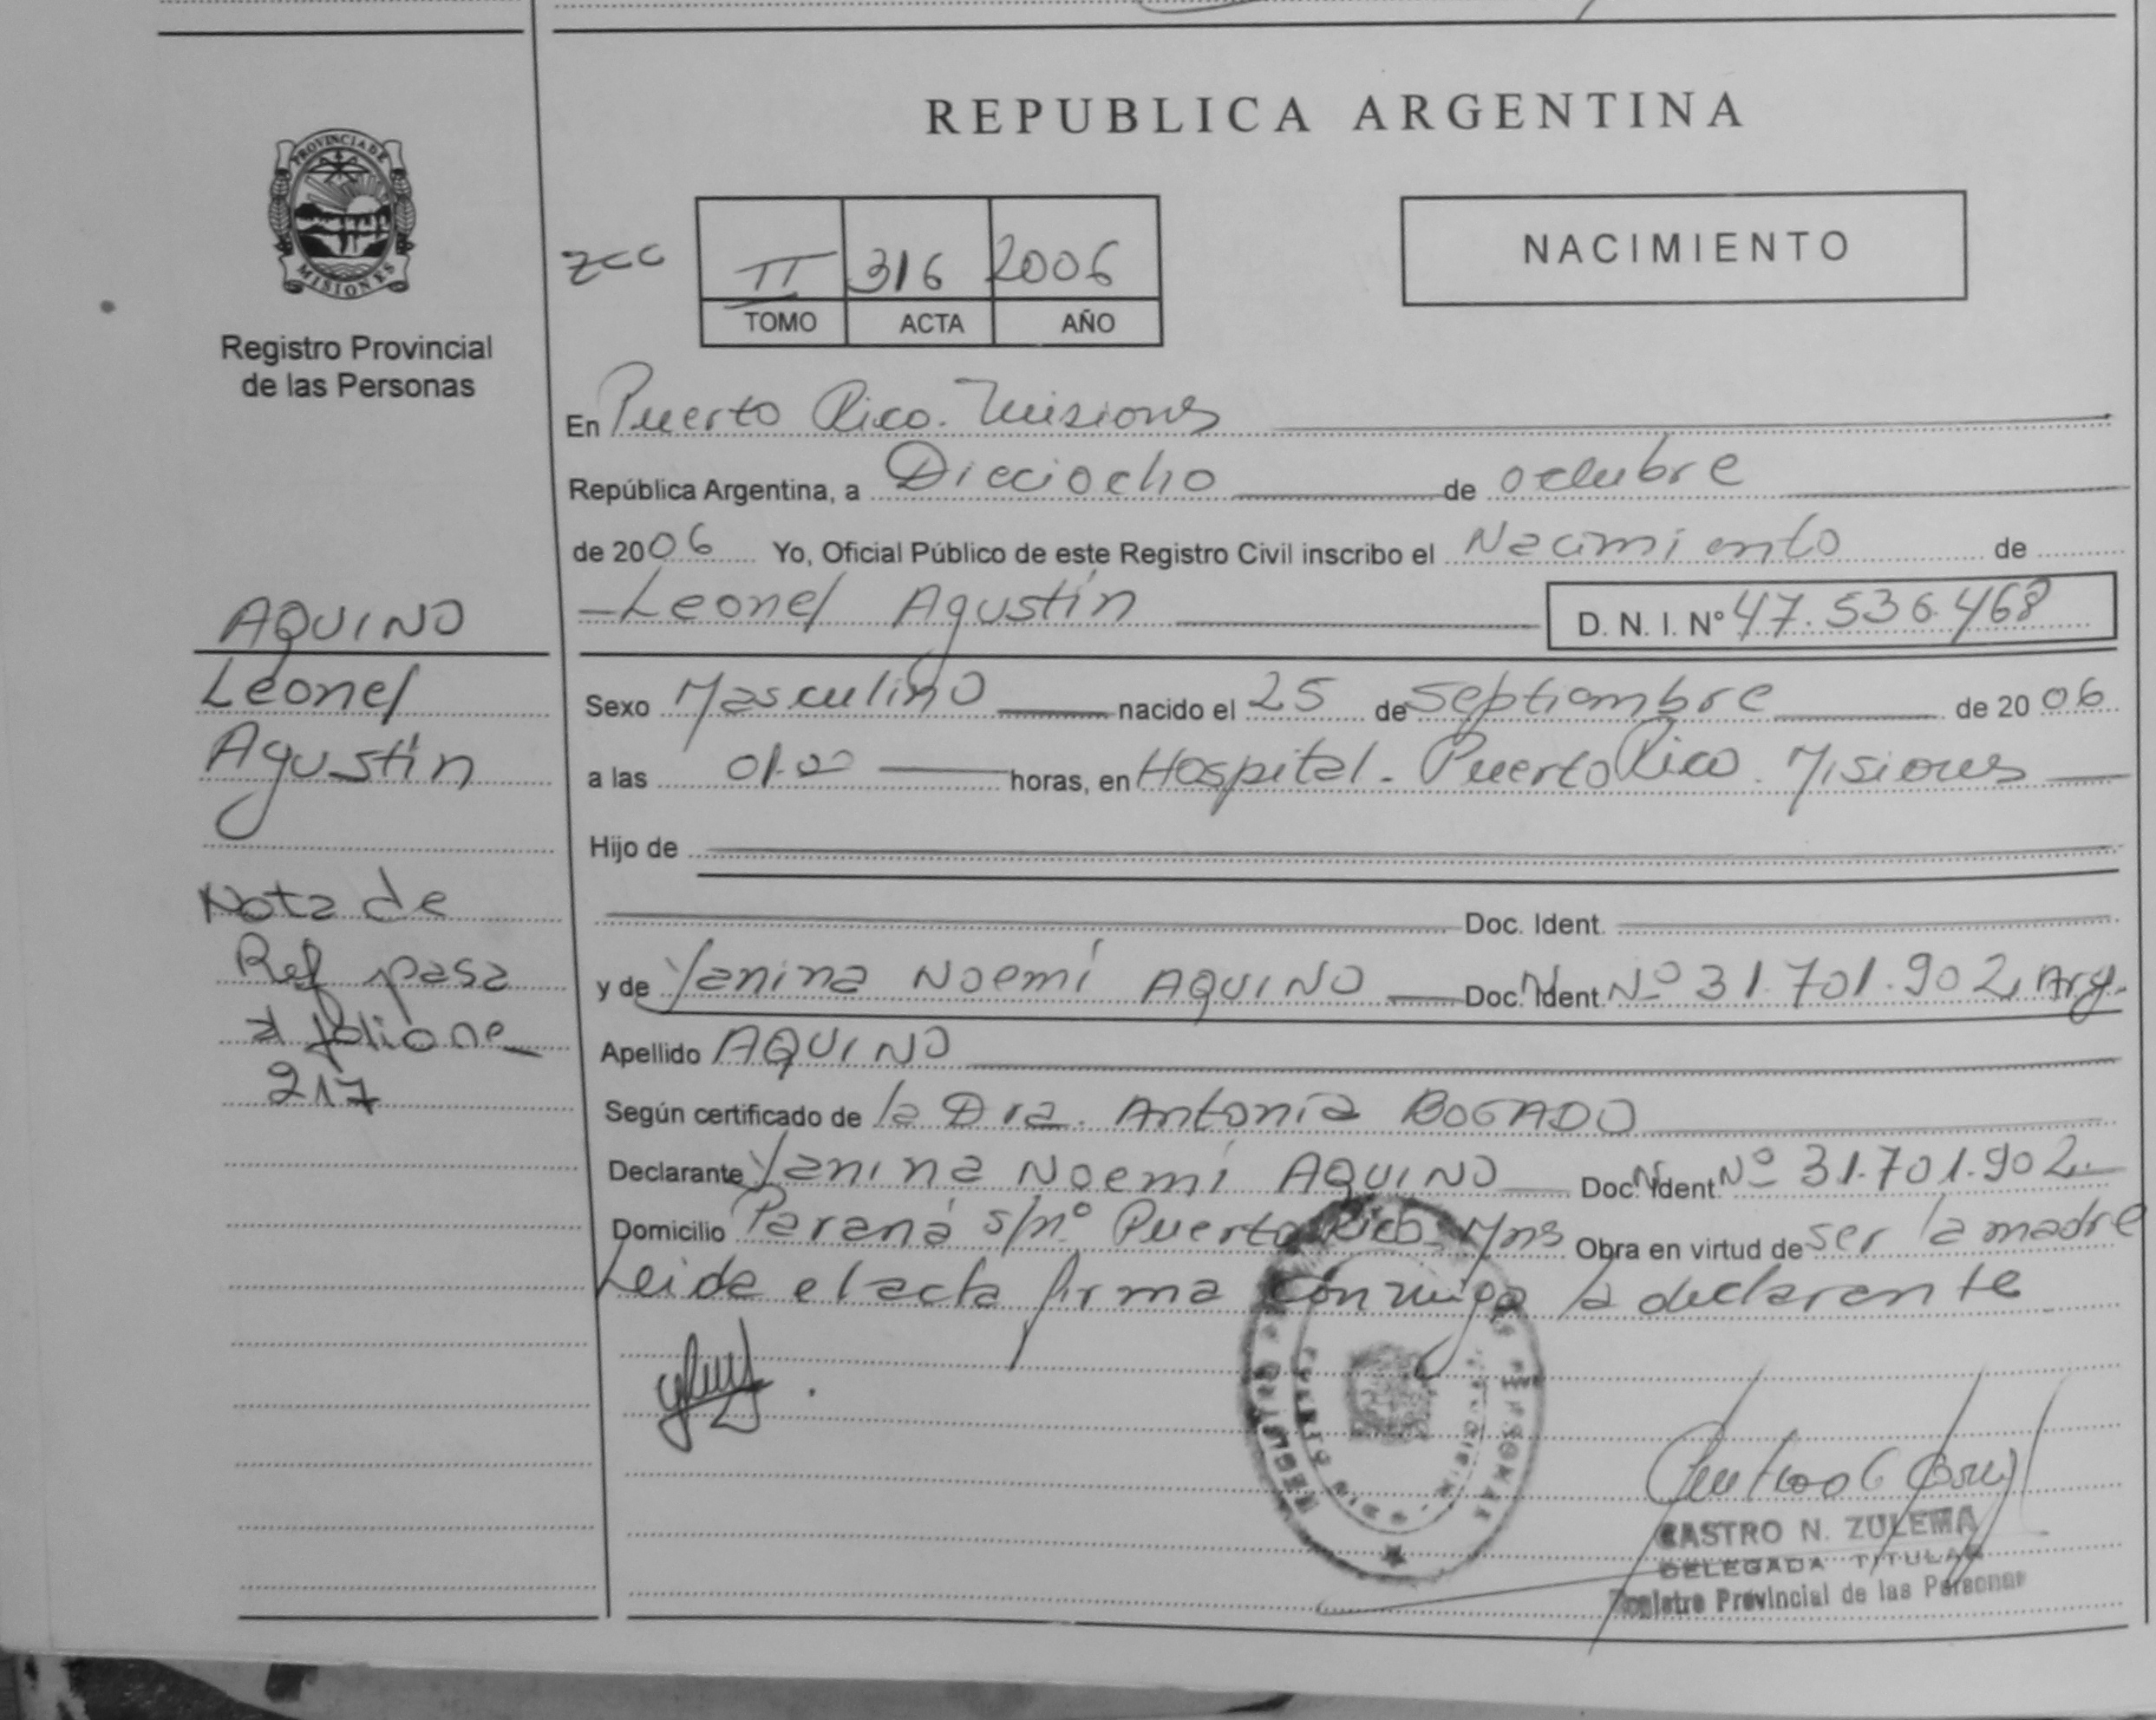 REPUBLICA ARGENTINA
PROVINCIA DE
MISIONES
Registro Provincial
de las Personas
NACIMIENTO
zcc
II 316 2006
TOMO ACTA AÑO
En Puerto Rico. Misiones
República Argentina, a Dieciocho de octubre
de 2006 Yo, Oficial Público de este Registro Civil inscribo el Nacimiento de
Leonel Agustín D. N. I. Nº 47.536.468
Sexo Masculino nacido el 25 de Septiembre de 2006
a las 01.00 horas, en Hospital. Puerto Rico. Misiones
Hijo de
Doc. Ident.
y de Yanina Noemí AQUINO Doc. Ident Nº 31.701.902 Arg.
Apellido AQUINO
Según certificado de la Dra. Antonia BOGADO
Declarante Yanina Noemí AQUINO Doc. Ident. Nº 31.701.902
Domicilio Paraná s/nº Puerto Rico Mns Obra en virtud de ser la madre
Leida el acta firma conmigo la declarante
AQUINO
Leonel
Agustín
Nota de
Ref pasa
al folio ne
217
REGISTRO PERSONAS
PUERTO
CASTRO N. ZULEMA
DELEGADA TITULAR
Registro Provincial de las Personas